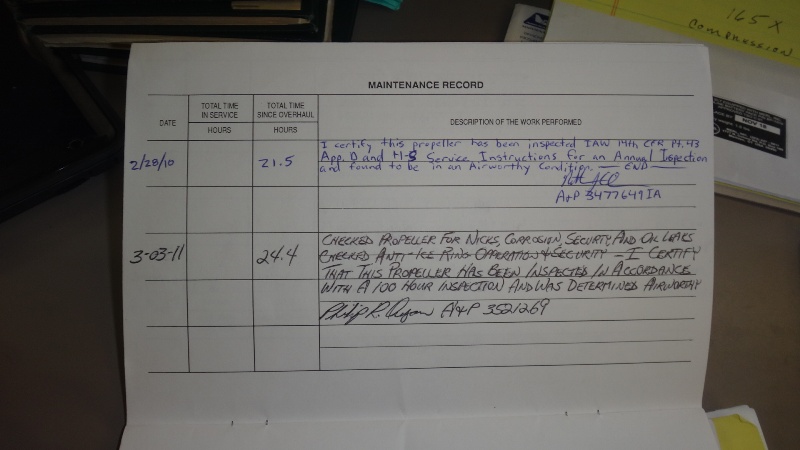 165X
COMPRESSION
NOV 16
MAINTENANCE RECORD
DATE
TOTAL TIME
IN SERVICE
HOURS
TOTAL TIME
SINCE OVERHAUL
HOURS
DESCRIPTION OF THE WORK PERFORMED
2/28/10
21.5
I certify this propeller has been inspected IAW 14th CFR Pt. 43
App. D and H-S Service Instructions for an Annual Inspection
and found to be in an Airworthy Condition. — END —
A+P 3477649IA
3-03-11
24.4
CHECKED PROPELLER FOR NICKS, CORROSION, SECURITY, AND OIL LEAKS
CHECKED ANTI-ICE RING OPERATION & SECURITY — I CERTIFY
THAT THIS PROPELLER HAS BEEN INSPECTED IN ACCORDANCE
WITH A 100 HOUR INSPECTION AND WAS DETERMINED AIRWORTHY
Philip R. A+P 3521269